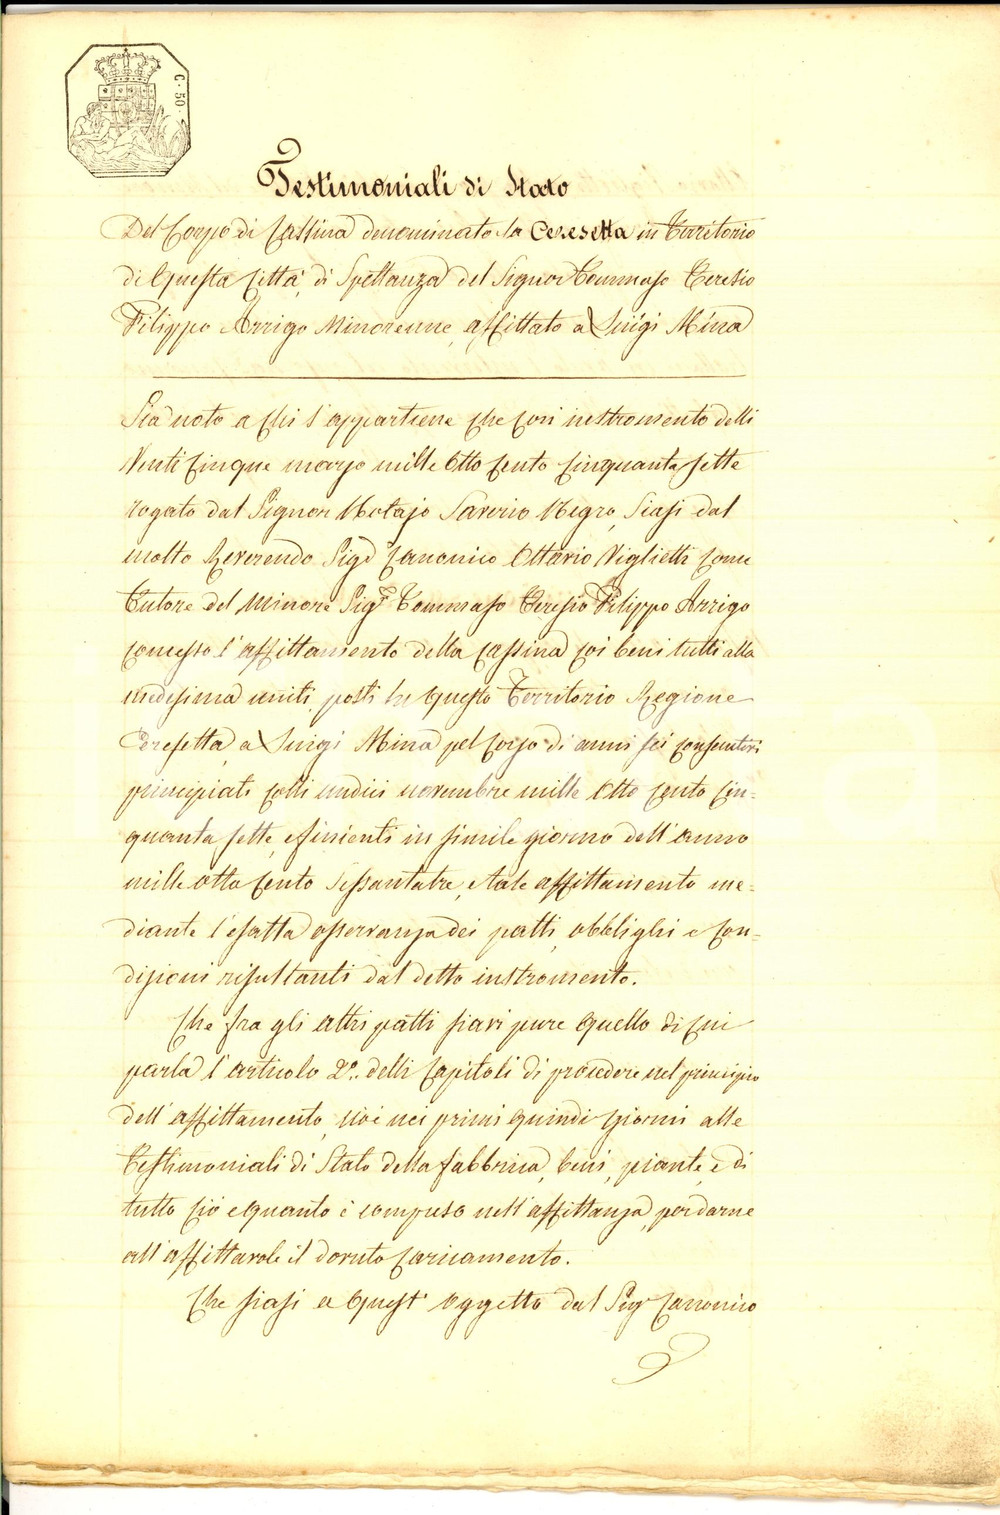 C. 50.
Testimoniali di Stato
Del Corpo di Cassina denominato la Ceresetta in Territorio
di Questa Città, di Spettanza del Signor Tommaso Teresio
Filippo Arrigo Minorenne, affittato a Luigi Mina
Sia noto a Chi s'appartiene che con instromento delli
Venti Cinque marzo mille Otto Cento Cinquanta Sette
rogato dal Signor Notajo Saverio Negro, Siasi dal
molto Reverendo Sigr Canonico Ottavio Viglietti Come
Tutore del Minore Sigr Tommaso Teresio Filippo Arrigo
concesso l'affittamento della Cassina Coi beni tutti alla
medesima uniti, posti in questo Territorio Regione
Ceresetta, a Luigi Mina pel Corso di anni sei Consecutivi
principiati Colli undici novembre mille Otto Cento Cin=
quanta Sette, e finienti in Simile giorno dell'anno
mille Otto Cento Sessantatre, e tale affittamento me=
diante l'esatta osservanza dei patti, obblighi e Con=
dizioni risultanti dal detto instromento.
Che fra gli altri patti siavi pure quello di Cui
parla l'articolo 2º. delli Capitoli di procedere nel principio
dell'affittamento, cioè nei primi quindici giorni alle
Testimoniali di Stato della fabbrica, beni, piante, e di
tutto Ciò e quanto è compreso nell'affittanza, per darne
all'affittavole il dovuto Caricamento.
Che siasi a quest'oggetto dal Sigr Canonico